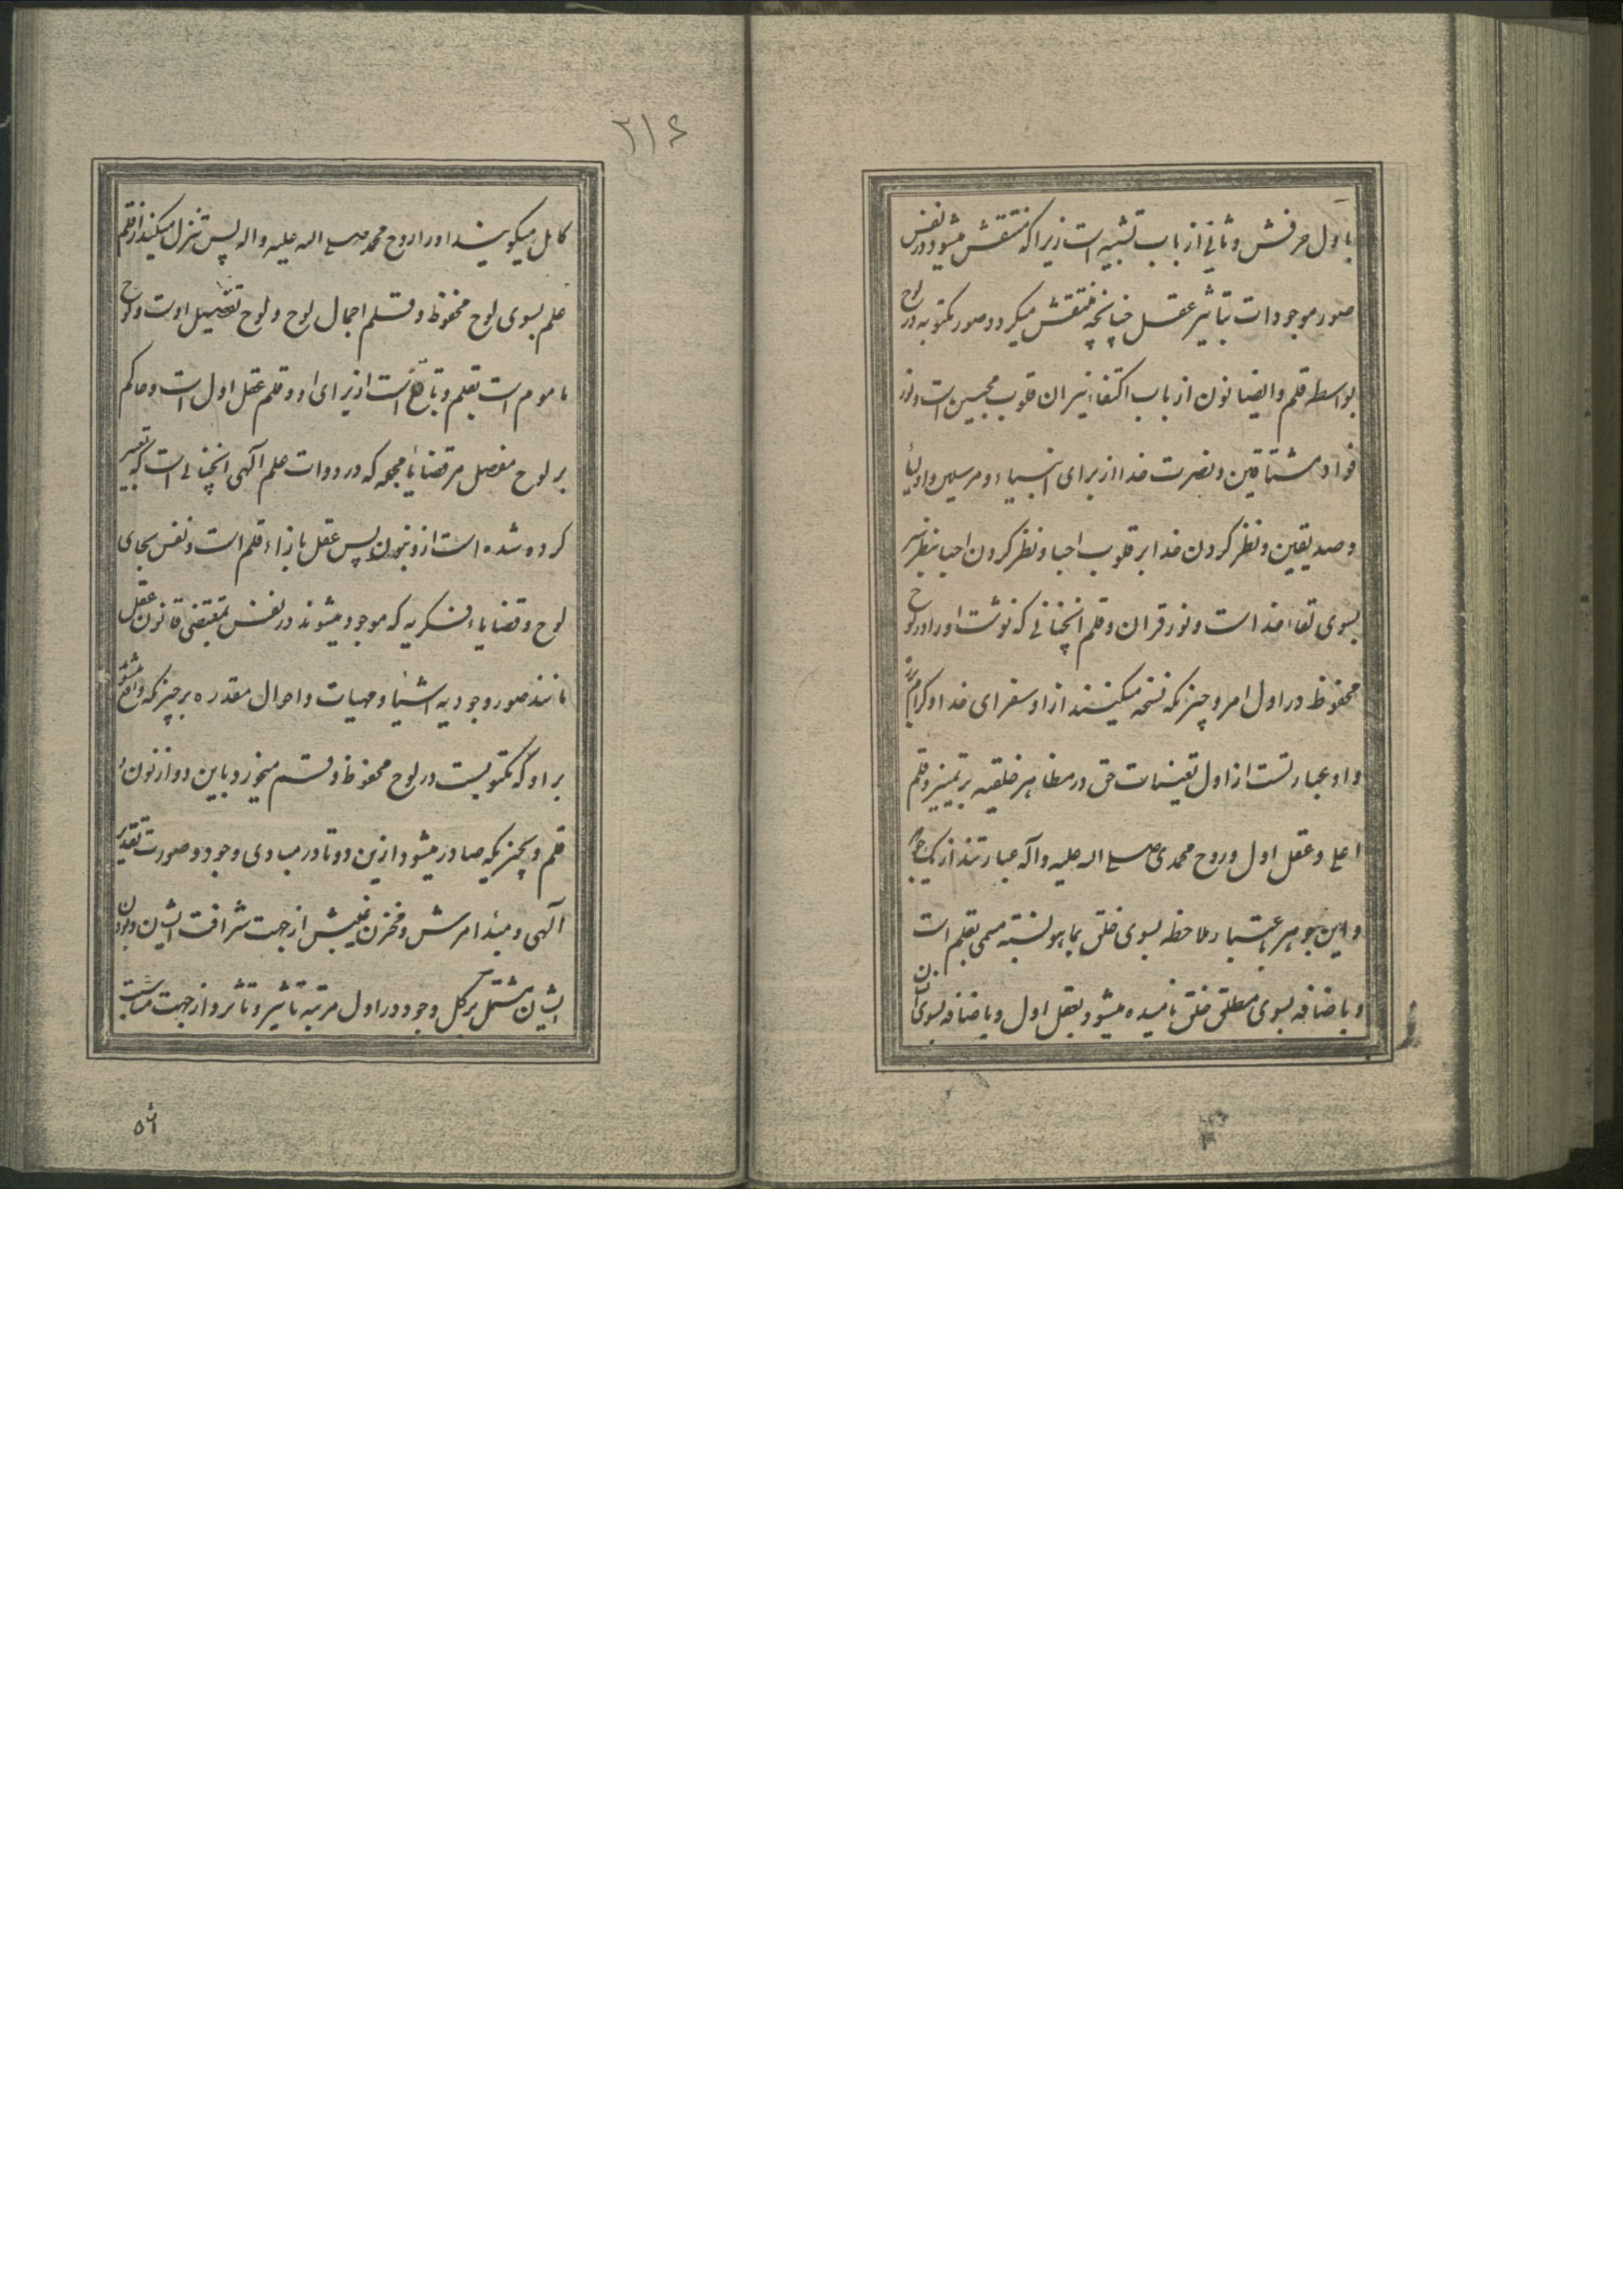 باول حرفش و ثانی از باب تشبیه است زیرا که منتقش میشود در نفس
صور موجودات بتاثیر عقل چنانچه منتقش میکردد صور مکتوبه در لوح
بواسطه قلم و ایضا نون از باب اکتفا نیران قلوب محبین است و نور
فواد مشتاقین و نصرت خدا از برای انبیاء و مرسلین و اولیا
و صدیقین و نظر کردن خدا بر قلوب احبا و نظر کردن احبا بنظر سر
بسوی لقاء خدا است و نور قران و قلم انچنانی که نوشت او را در لوح
محفوظ در اول امر و چیزیکه نسخه میکینند از او سفرای خدا و کرام
و او عبارتست از اول تعینات حق در مظاهر خلقیه بر تمییز و قلم
اعلی و عقل اول و روح محمدی صلی اله علیه و آله عبارتند از یک جوهر
و این جوهر باعتبار ملاحظه بسوی خلق بما هو نسبته مسمی بقلم است
و باضافه بسوی مطلق خلق نامیده میشود بعقل اول و باضافه بسوی انسان
۳۱۶
کامل میکویند او را روح محمد صلی اله علیه و اله پس تنزل میکند از قلم
علم بسوی لوح محفوظ و قلم اجمال لوح و لوح تفصیل اوست و لوح
ماموم است بقلم و تابع است از برای او و قلم عقل اول است و حاکم
بر لوح مفصل مر قضایا مجمه که در دوات علم آلهی انچنانی است که تعبیر
کرده شده است ازو بنون پس عقل بازاء قلم است و نفس بجای
لوح و قضایاء فکریه که موجود میشوند در نفس بمقتضی قانون عقل
مانند صور وجودیه اشیا و مهیات و احوال مقدره بر چیزیکه واقع میشود
بر او که مکتوبست در لوح محفوظ و قسم میخورد باین دو از نون و
قلم و بچیزیکه صادر میشود ازین دو تا در مبادی وجود و صورت تقدیر
آلهی و مبدا امرش و مخزن غیبش از جهت شرافت ایشان و بودن
ایشان مشتمل بر کل وجود در اول مرتبه تاثیر و تاثر و از جهت مناسبت